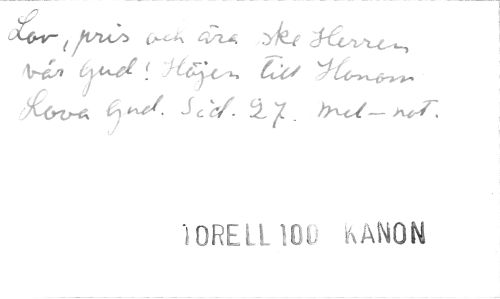 Lov, pris och ära ske Herren
vår Gud! Höjen till Honom
Lova Gud. Sid. 27. Mel-not.
TORELL 100 KANON